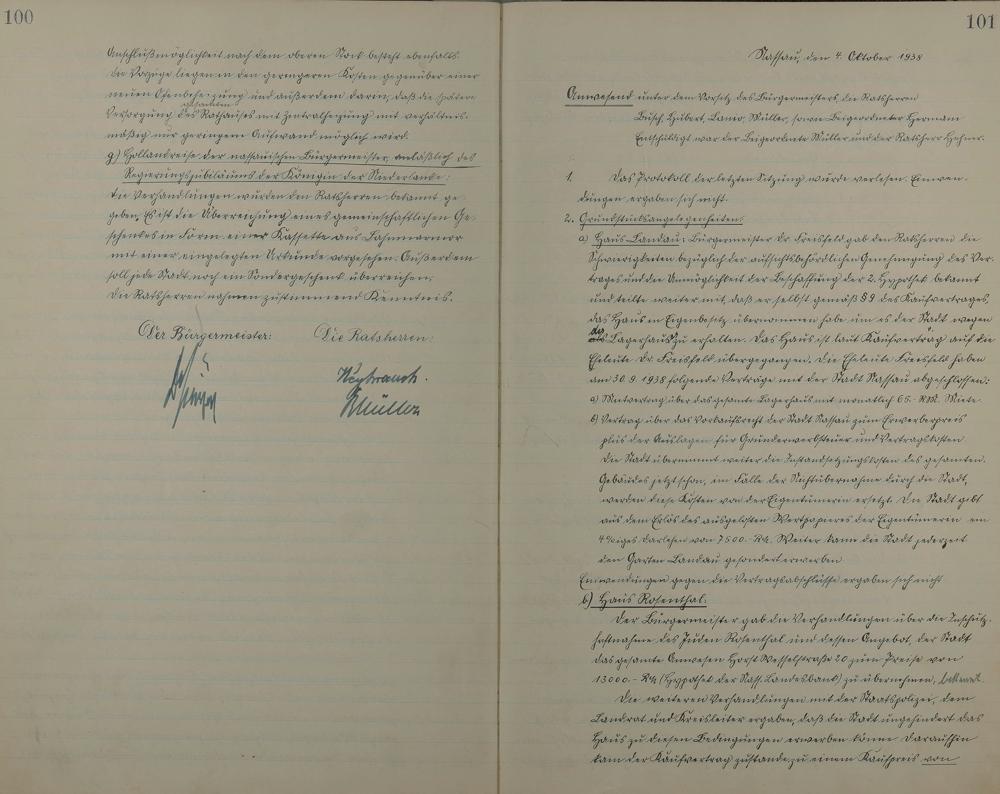 100
Anschlußmöglichkeit nach dem oberen Stock besteht ebenfalls.
Die Vorzüge liegen in den geringeren Kosten gegenüber einer
neuen Ofenbeheizung und außerdem darin, daß die spätere
gesamten
Versorgung des Rathauses mit Zentralheizung mit verhältnis-
mäßig nur geringem Aufwand möglich wird.
g) Hollandreise der nassauischen Bürgermeister anläßlich des
Regierungsjubiläums der Königin der Niederlande:
Die Verhandlungen wurden den Ratsherren bekannt ge-
geben. Es ist die Überreichung eines gemeinschaftlichen Ge-
schenkes in Form einer Kassette aus Lahnmarmor
mit einer eingelegten Urkunde vorgesehen. Außerdem
soll jede Stadt noch ein Sondergeschenk überreichen.
Die Ratsherren nahmen zustimmend Kenntnis.
Der Bürgermeister: Die Ratsherren:
Müller
101
Nassau, den 4. Oktober 1938
Anwesend unter dem Vorsitz des Bürgermeisters die Ratsherren
Hübert, Müller, sowie Beigeordneter Hermann
Entschuldigt war der Beigeordnete Müller und der Ratsherr
1. Das Protokoll der letzten Sitzung wurde verlesen. Einwen-
dungen ergaben sich nicht.
2. Grundstücksangelegenheiten.
a) Haus Landau: Bürgermeister Dr. Freisfeld gab den Ratsherren die
Schwierigkeiten bezüglich der aufsichtsbehördlichen Genehmigung des Ver-
trages und die Unmöglichkeit der Beschaffung der 2. Hypothek bekannt
und teilte weiter mit, daß er selbst gemäß § 9 des Kaufvertrages
das Haus in Eigenbesitz übernommen habe um es der Stadt wegen
des Lagerhauses zu erhalten. Das Haus ist laut Kaufvertrag auf die
Eheleute Dr. Freisfeld übergegangen. Die Eheleute Freisfeld haben
am 30.9.1938 folgende Verträge mit der Stadt Nassau abgeschlossen:
a) Mietvertrag über das gesamte Lagerhaus mit monatlich 65.- RM. Miete
b) Vertrag über das Vorkaufsrecht der Stadt Nassau zum Erwerberpreis
plus der Auslagen für Grunderwerbsteuer und Vertragskosten
Die Stadt übernimmt weiter die Instandsetzungskosten des gesamten
Gebäudes jetzt schon, im Falle der Nichtübernahme durch die Stadt,
werden diese Kosten von der Eigentümerin ersetzt. Die Stadt gibt
aus dem Erlös des ausgelosten Wertpapieres der Eigentümerin ein
4%iges Darlehen von 7500.- RM. Weiter kann die Stadt jederzeit
den Garten Landau gesondert erwerben.
Einwendungen gegen die Vertragsabschlüsse ergaben sich nicht
b) Haus Rosenthal:
Der Bürgermeister gab die Verhandlungen über die Inschutz-
haftnahme des Juden Rosenthal und dessen Angebot, der Stadt
das gesamte Anwesen Horst Wesselstraße 20 zum Preise von
13000.- RM (Hypothek der Nass. Landesbank) zu übernehmen, bekannt.
Die weiteren Verhandlungen mit der Staatspolizei, dem
Landrat und Kreisleiter ergaben, daß die Stadt ungehindert das
Haus zu diesen Bedingungen erwerben könne. Daraufhin
kam der Kaufvertrag zustande zu einem Kaufpreis von